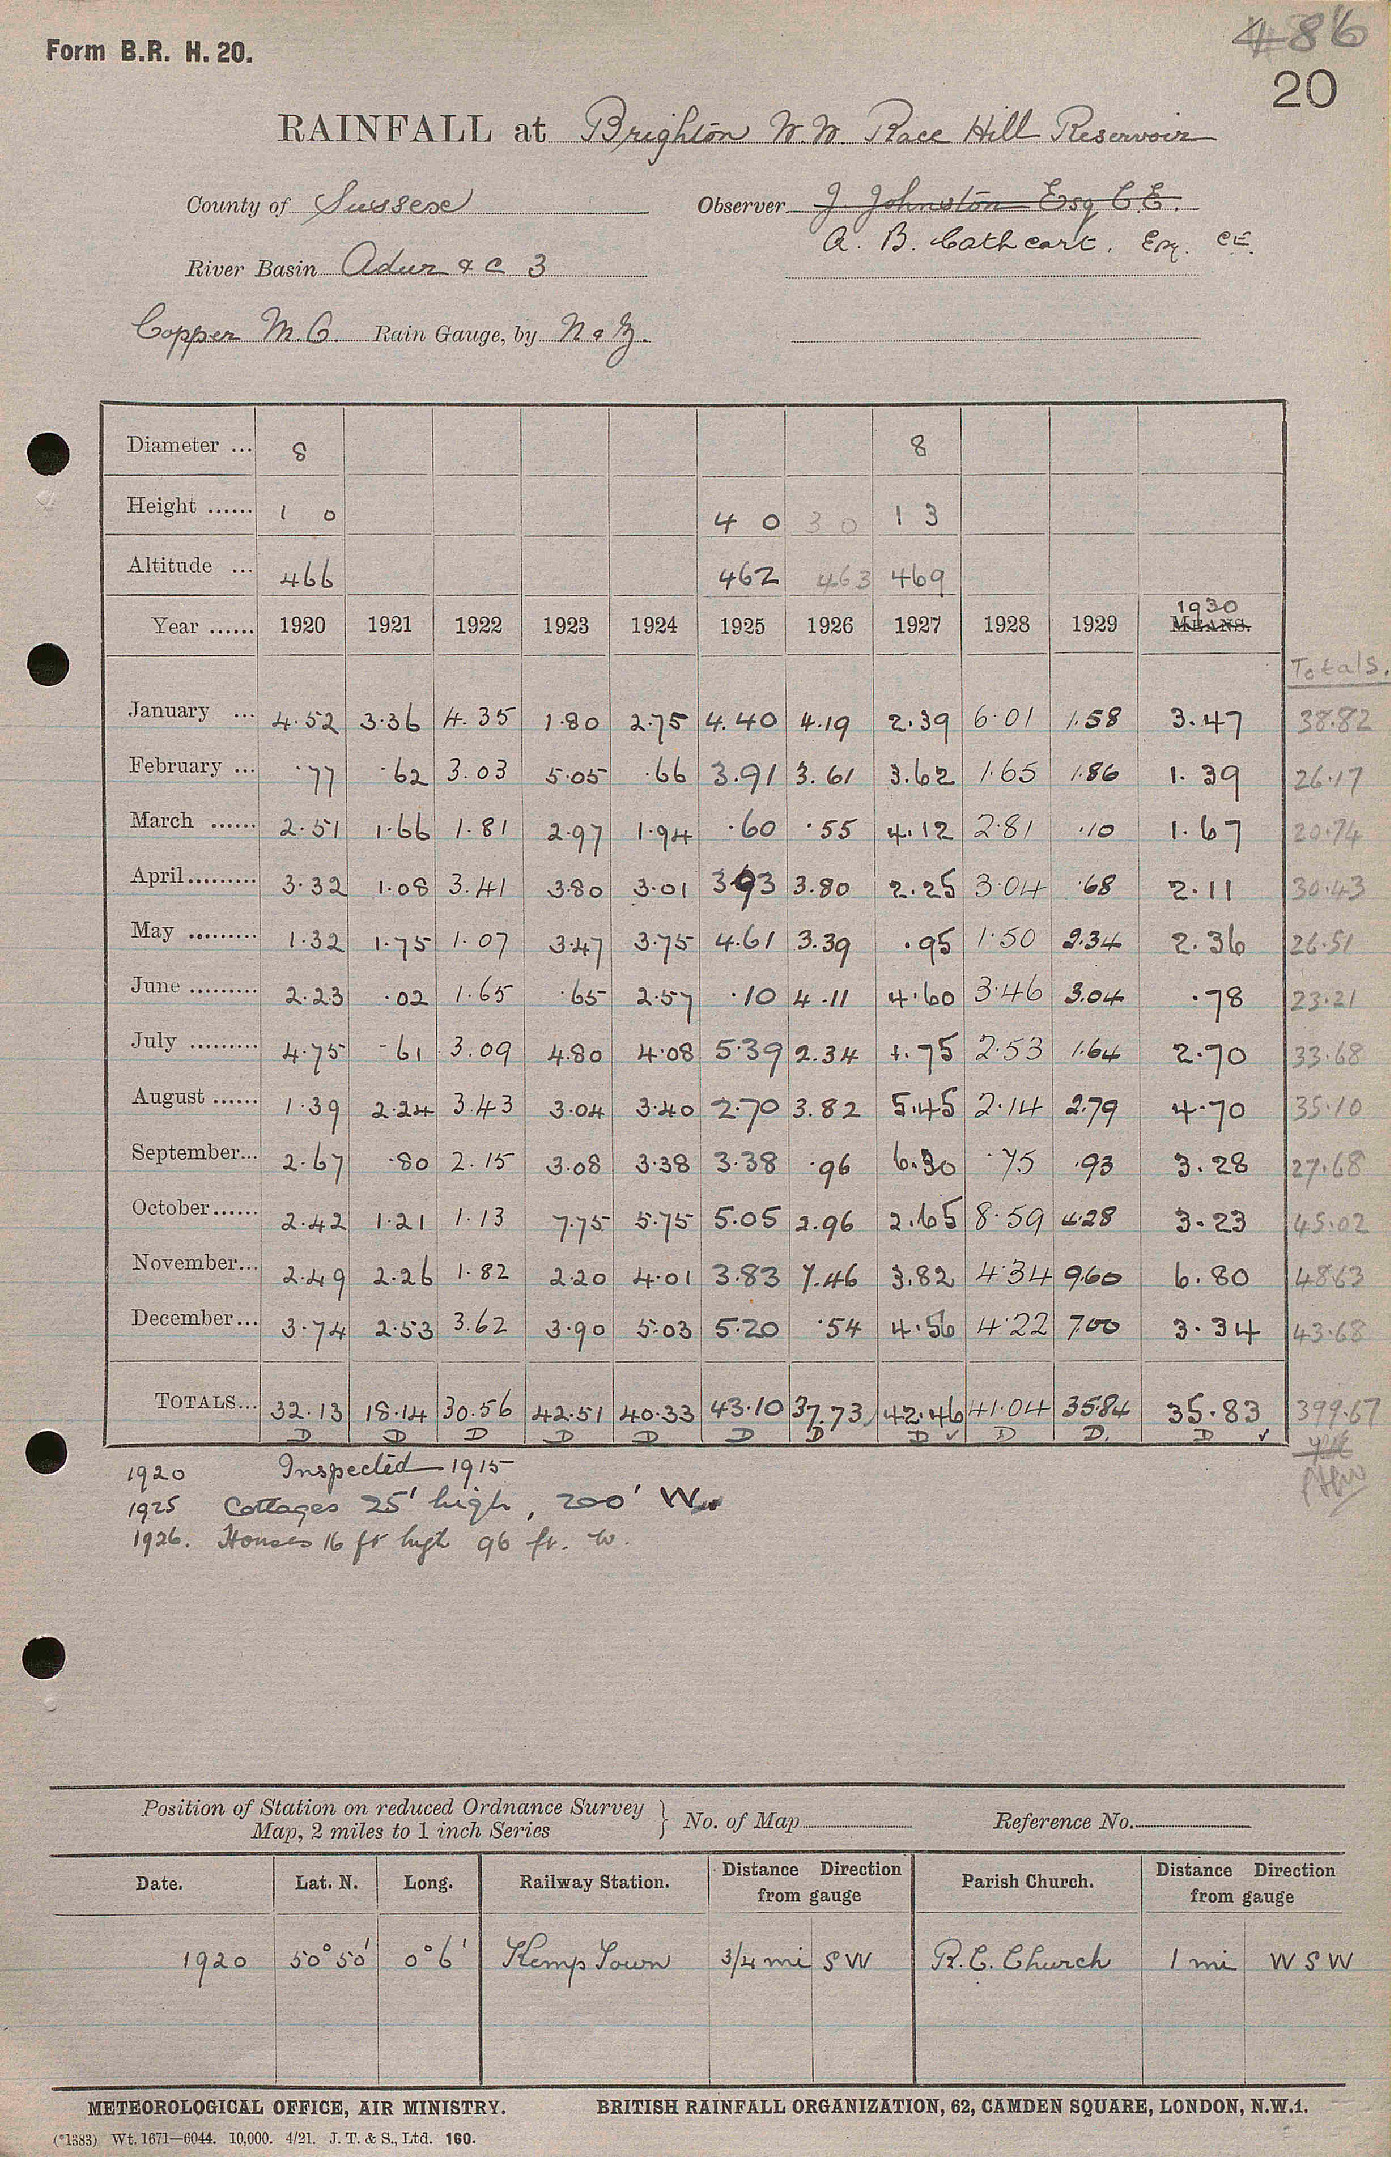 Form B.R. H. 20.
486
20
RAINFALL at Brighton W.W. Race Hill Reservoir
County of Sussex Observer J. Johnston Esq C.E.
A. B. Cathcart, Esq. CE.
River Basin Adur & C 3
Copper M.O. Rain Gauge, by N & Z.
Diameter ... 8 8
Height ...... 1 0 4 0 3 0 1 3
Altitude ... 466 462 463 469
1930
Year ...... 1920 1921 1922 1923 1924 1925 1926 1927 1928 1929 MEANS.
Totals.
January ... 4.52 3.36 4.35 1.80 2.75 4.40 4.19 2.39 6.01 1.58 3.47 38.82
February ... .77 .62 3.03 5.05 .66 3.91 3.61 3.62 1.65 1.86 1.39 26.17
March ...... 2.51 1.66 1.81 2.97 1.94 .60 .55 4.12 2.81 .10 1.67 20.74
April......... 3.32 1.08 3.41 3.80 3.01 3.93 3.80 2.25 3.04 .68 2.11 30.43
May ......... 1.32 1.75 1.07 3.47 3.75 4.61 3.39 .95 1.50 2.34 2.36 26.51
June ......... 2.23 .02 1.65 .65 2.57 .10 4.11 4.60 3.46 3.04 .78 23.21
July ......... 4.75 .61 3.09 4.80 4.08 5.39 2.34 1.75 2.53 1.64 2.70 33.68
August ...... 1.39 2.24 3.43 3.04 3.40 2.70 3.82 5.45 2.14 2.79 4.70 35.10
September... 2.67 .80 2.15 3.08 3.38 3.38 .96 6.30 .75 .93 3.28 27.68
October...... 2.42 1.21 1.13 7.75 5.75 5.05 2.96 2.65 8.59 4.28 3.23 45.02
November... 2.49 2.26 1.82 2.20 4.01 3.83 7.46 3.82 4.34 9.60 6.80 48.63
December... 3.74 2.53 3.62 3.90 5.03 5.20 .54 4.56 4.22 7.00 3.34 43.68
TOTALS... 32.13 18.14 30.56 42.51 40.33 43.10 37.73 42.46 41.04 35.84 35.83 399.67
D D D D D D D D ✓ D D. D ✓
1920 Inspected 1915
1925 Cottages 25' high, 200' W.
1926. Houses 16 ft high 96 ft. W.
Position of Station on reduced Ordnance Survey
Map, 2 miles to 1 inch Series } No. of Map Reference No.
Date. Lat. N. Long. Railway Station. Distance Direction from gauge Parish Church. Distance Direction from gauge
1920 50° 50' 0° 6' Kemp Town 3/4 mi S W R.C. Church 1 mi W S W
METEOROLOGICAL OFFICE, AIR MINISTRY. BRITISH RAINFALL ORGANIZATION, 62, CAMDEN SQUARE, LONDON, N.W.1.
(*1383) Wt. 1671—6044. 10,000. 4/21. J. T. & S., Ltd. 160.